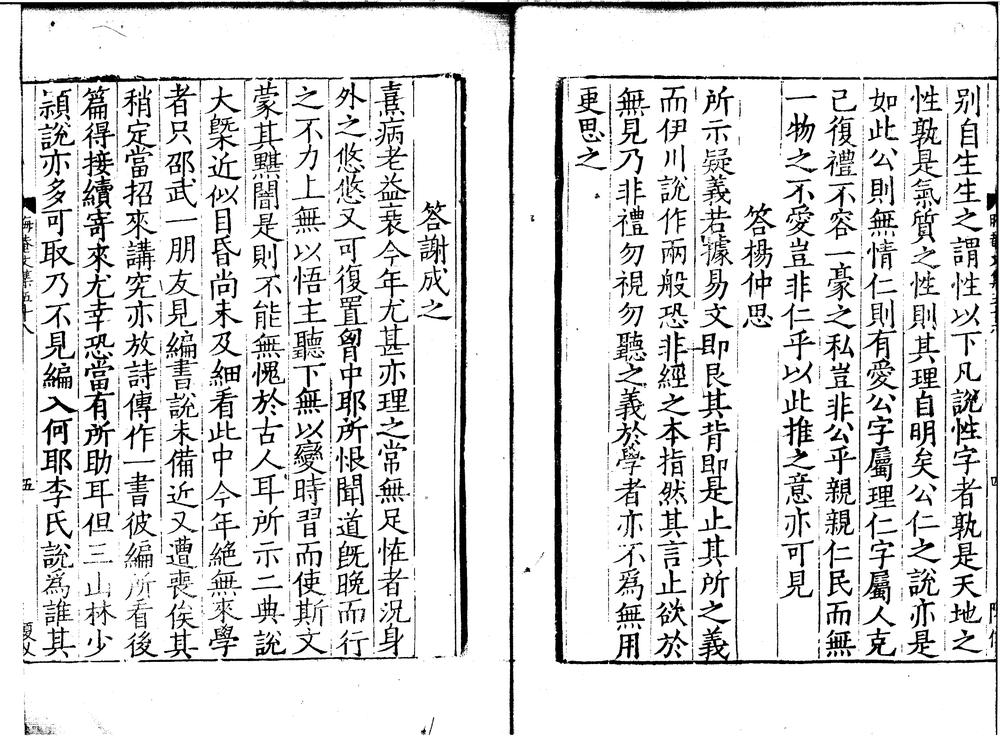 别自生生之謂性以下凡說性字者孰是天地之
性孰是氣質之性則其理自明矣公仁之說亦是
如此公則無情仁則有愛公字屬理仁字屬人克
己復禮不容一豪之私豈非公乎親親仁民而無
一物之不愛豈非仁乎以此推之意亦可見
答楊仲思
所示疑義若據易文即艮其背即是止其所之義
而伊川說作兩般恐非經之本指然其言止欲於
無見乃非禮勿視勿聽之義於學者亦不爲無用
更思之
四
答謝成之
熹病老益衰今年尤甚亦理之常無足怪者況身
外之悠悠又可復置胷中耶所恨聞道旣晚而行
之不力上無以悟主聽下無以變時習而使斯文
蒙其黮闇是則不能無愧於古人耳所示二典說
大槩近似目昏尚未及細看此中今年絶無來學
者只邵武一朋友見編書說未備近又遭喪俟其
稍定當招來講究亦放詩傳作一書彼編所看後
篇得接續寄來尤幸恐當有所助耳但三山林少
潁說亦多可取乃不見編入何耶李氏說爲誰其
晦菴文集五十八
五